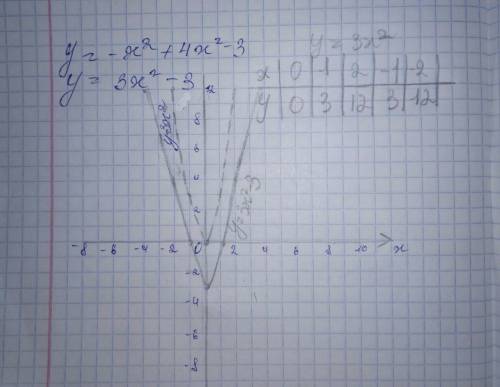 y = -x² + 4x² - 3
y = 3x² - 3
y = 3x²
x 0 1 2 -1 -2
y 0 3 12 3 12
y=3x²
y=3x²-3
8
6
4
2
-8 -6 -4 -2 0 2 4 6 8 10 x
-2
-4
-6
-8